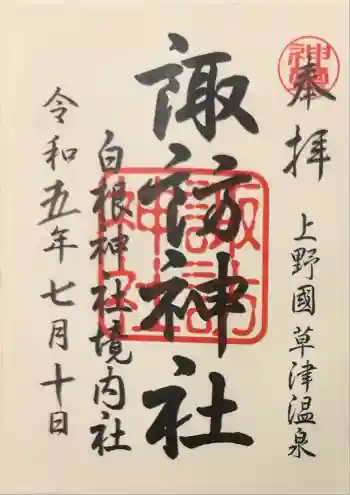 奉拝
上野國草津温泉
諏訪神社
諏訪神社
白根神社境内社
令和五年七月十日